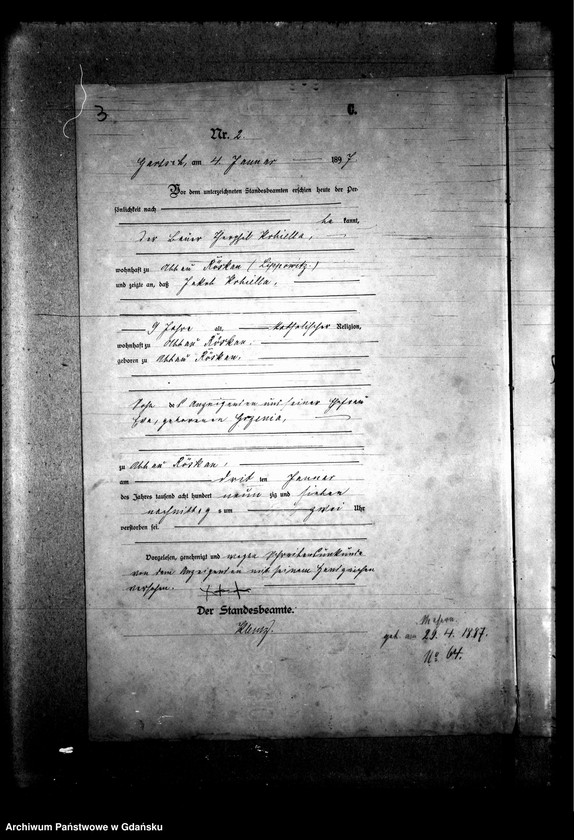 3
C.
Nr. 2.
am 4. Januar 1897
Vor dem unterzeichneten Standesbeamten erschien heute, der Per-
sönlichkeit nach
be kannt,
der Bauer
wohnhaft zu Abbau Röskau
und zeigte an, daß Jakob
9 Jahre alt, katholischer Religion,
wohnhaft zu Abbau Röskau,
geboren zu Abbau Röskau,
Sohn des Anzeigenden und seiner Ehefrau
Eva, geborenen
zu Abbau Röskau,
am dritten Januar
des Jahres tausend acht hundert neunzig und sieben
nachmittags um zwei Uhr
verstorben sei.
Vorgelesen, genehmigt und wegen Schreibensunkunde
von dem Anzeigenden mit seinem Handzeichen
versehen.
+++
Der Standesbeamte.
geb. am 29. 4. 1887.
Nº 64.
Archiwum Państwowe w Gdańsku